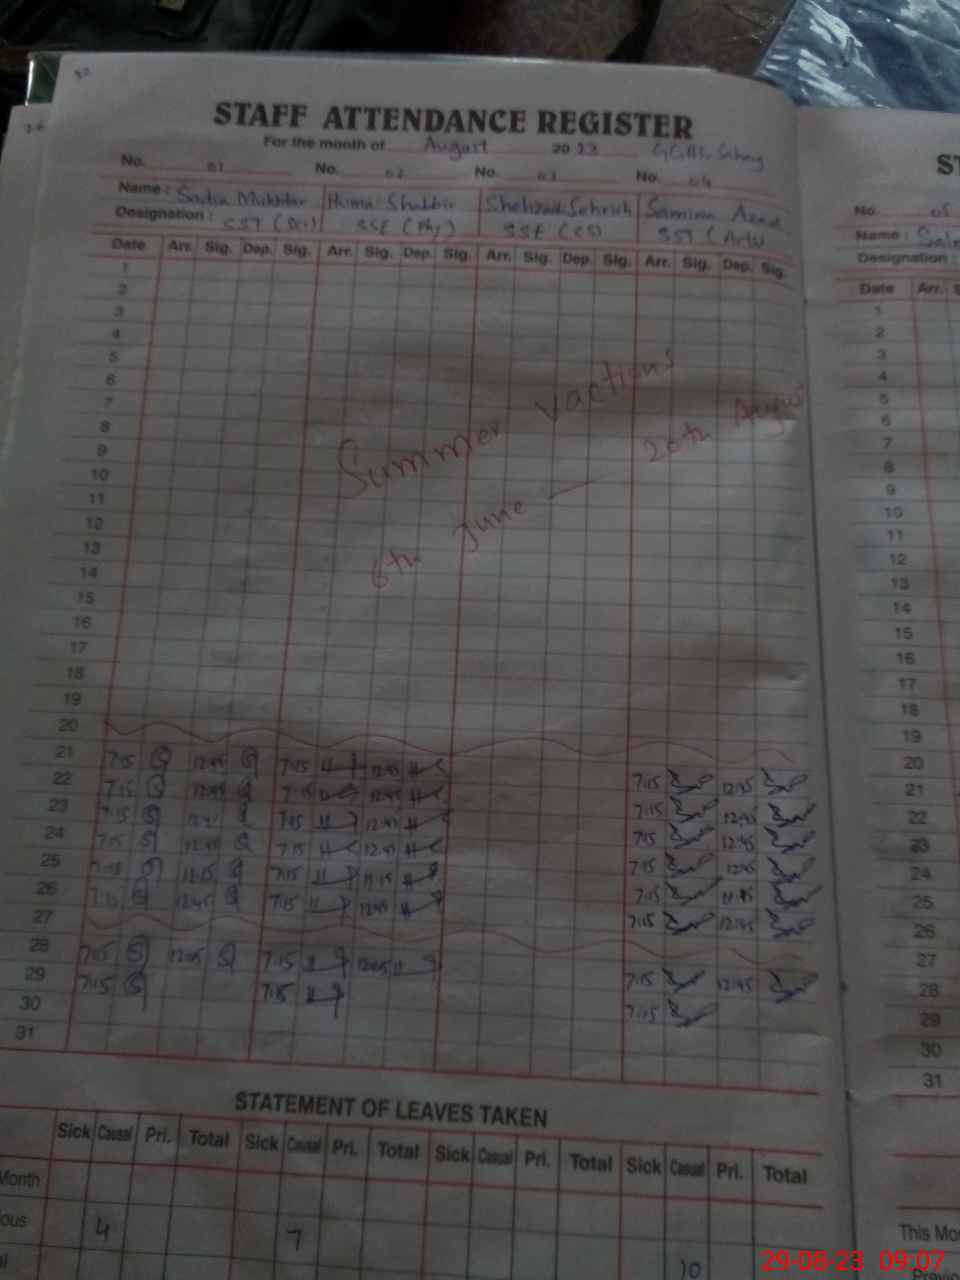 32
STAFF ATTENDANCE REGISTER
For the month of August 2023 GGHS,
No. 01 No. 02 No. 03 No. 04
Name : Sadia Mukhtar Huma Shabbir Shehzadi Sehrish Samina Azad
Designation : SST (Sci) SSE (Phy) SSE (CS) SST (Arts)
Date Arr. Sig. Dep. Sig. Arr. Sig. Dep. Sig. Arr. Sig. Dep. Sig. Arr. Sig. Dep. Sig.
1
2
3
4
5
6
7
8
9
10
11
12
13
14
15
16
17
18
19
20
Summer Vactions
6th June — 20th August
21 7:15 12:45 7:15 12:45 7:15 12:45
22 7:15 12:45 7:15 12:45 7:15 12:45
23 7:15 7:15 12:45 7:15 12:45
24 7:15 12:45 7:15 12:45 7:15 12:45
25 7:15 11:15 7:15 11:15 7:15
26 7:15 12:45 7:15 12:45 7:15 12:45
27
28 7:15 12:45 7:15 12:45 7:15 12:45
29 7:15 7:15 7:15
30
31
STATEMENT OF LEAVES TAKEN
Sick Causal Pri. Total Sick Causal Pri. Total Sick Causal Pri. Total Sick Causal Pri. Total
Month
ous 4 7
10
No. 05
Name :
Designation :
Date Arr.
1
2
3
4
5
6
7
8
9
10
11
12
13
14
15
16
17
18
19
20
21
22
23
24
25
26
27
28
29
30
31
This Mo
29-08-23 09:07